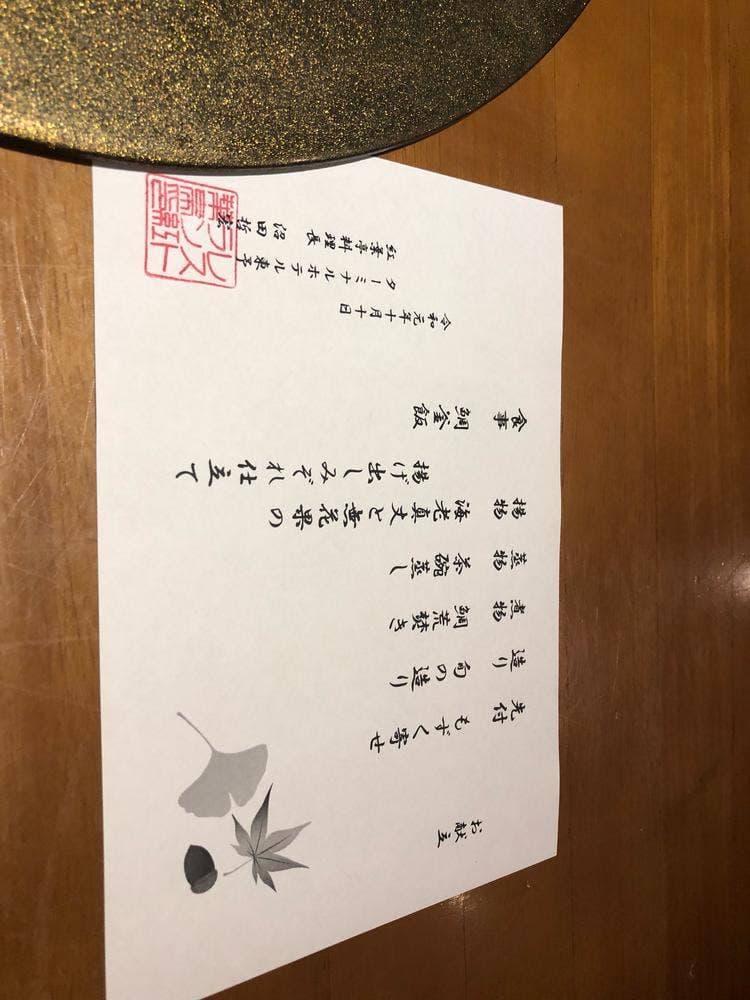 お献立
先付 もずく寄せ
造り 旬の造り
煮物 鯛荒焚き
蒸物 茶碗蒸し
揚物 海老真丈と無花果の
揚げ出しみぞれ仕立て
食事 鯛釜飯
令和元年十月十日
ターミナルホテル東予
紅葉亭料理長 沼田 哲